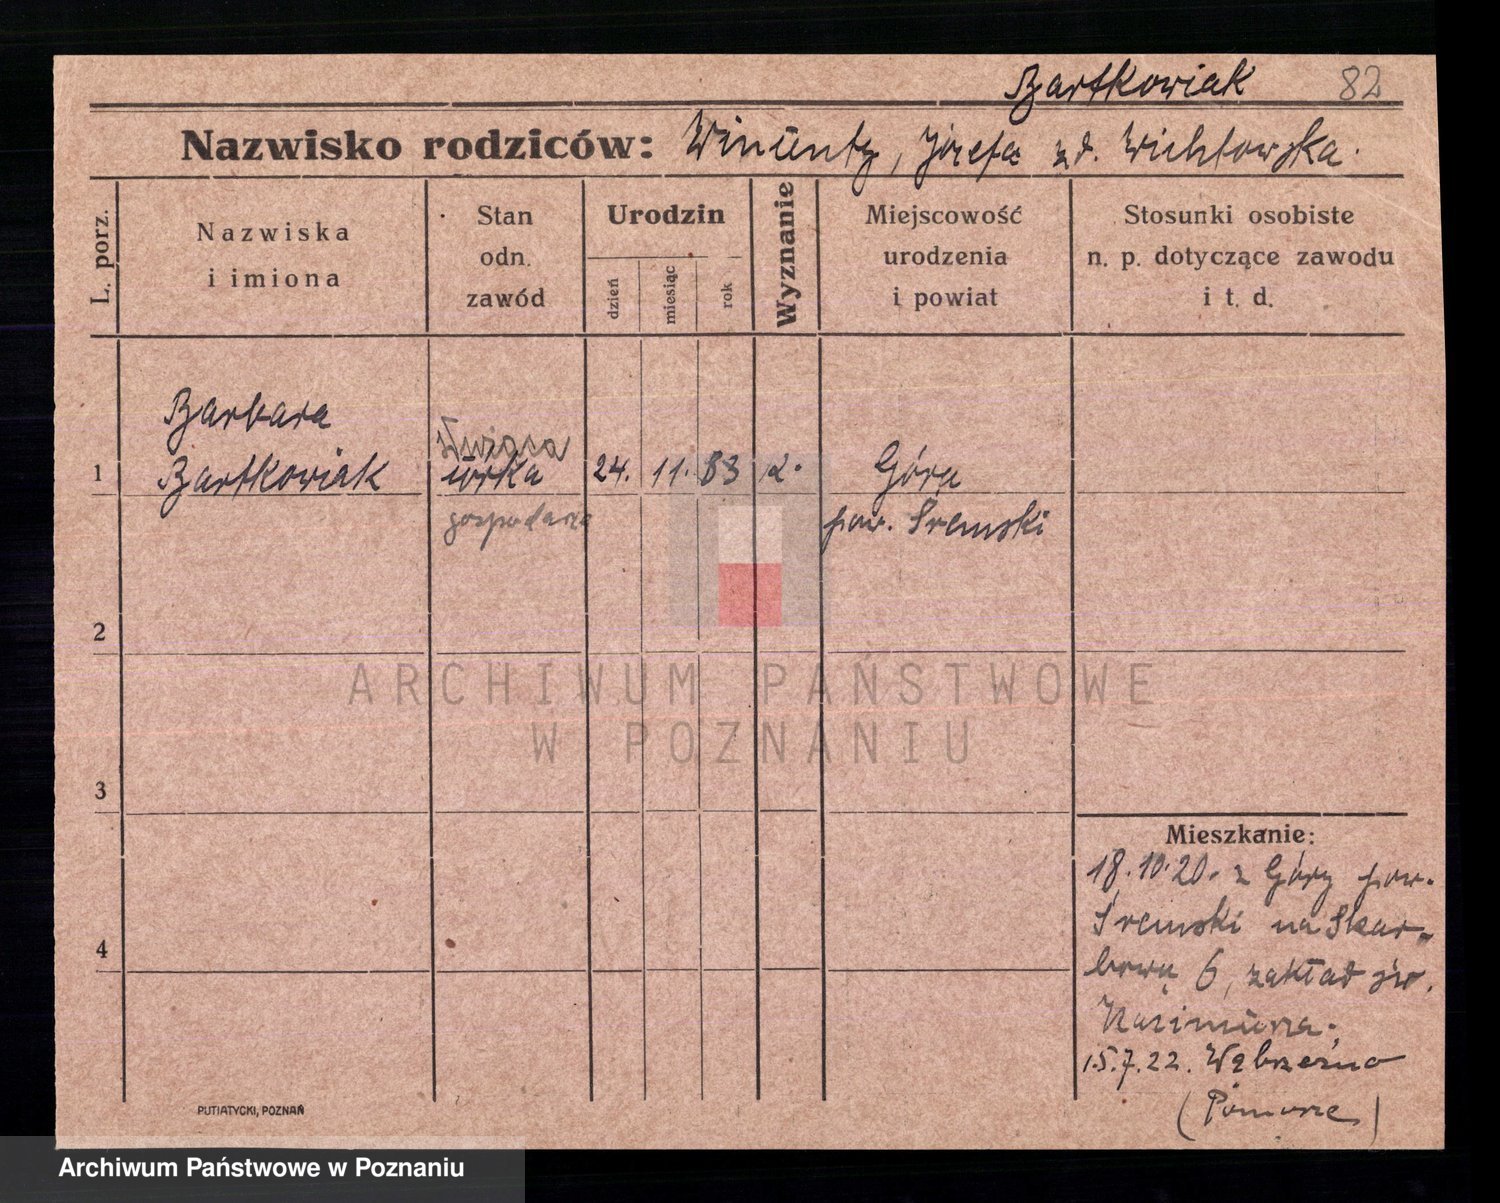 Bartkowiak 82
Nazwisko rodziców: Wincenty, Józefa zd. Wichłowska.
L. porz.
Nazwiska
i imiona
Stan
odn.
zawód
Urodzin
dzień
miesiąc
rok
Wyznanie
Miejscowość
urodzenia
i powiat
Stosunki osobiste
n. p. dotyczące zawodu
i t. d.
Barbara
1 Bartkowiak córka 24. 11. 83 k. Góra
gospodarza pow. Śremski
2
3
4
Mieszkanie:
18.10.20. z Góry pow.
Śremski na Skar-
bową 6, zakład św.
Kazimierza.
15.7.22. Wąbrzeźno
(Pomorze)
PUTIATYCKI, POZNAŃ
ARCHIWUM PAŃSTWOWE
W POZNANIU
Archiwum Państwowe w Poznaniu